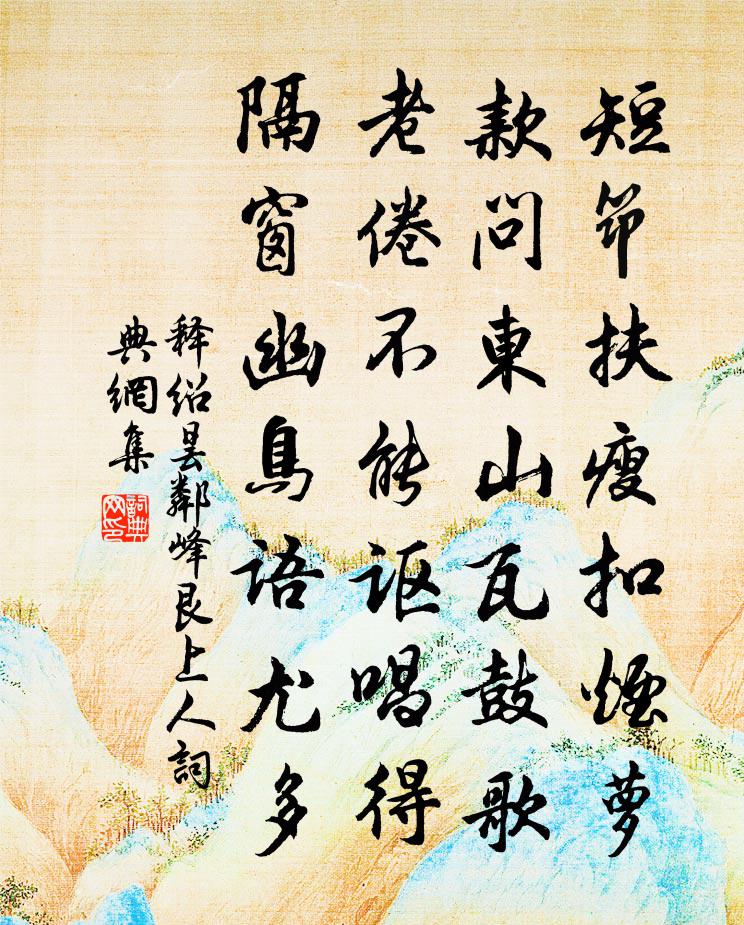 短筇扶瘦扣煙萝
款问東山瓦鼓歌
老倦不能讴唱得
隔窗幽鳥语尤多
释绍昙鄰峰艮上人詞
典網集
詞典
网印